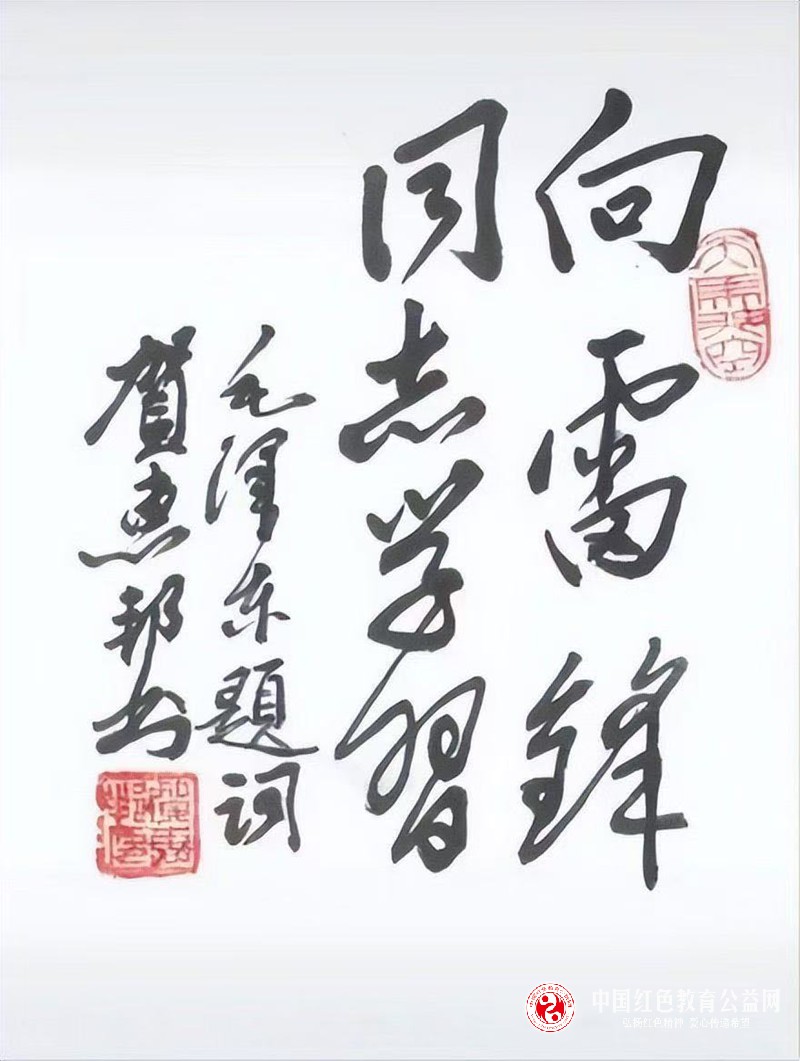 向雷锋
同志学习
毛泽东题词
贺惠邦书
中国红色教育公益网